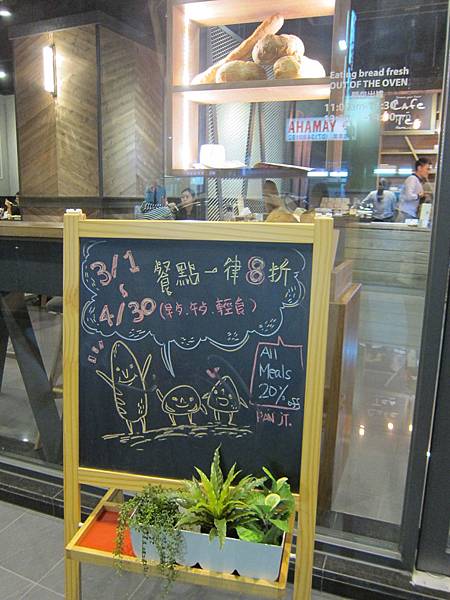 Eating bread fresh
OUT OF THE OVEN
YAMAHA
Cafe
3/1
4/30
餐點一律8折
(早夕.午夕.輕食)
All
Meals
20% off
PAN JT.